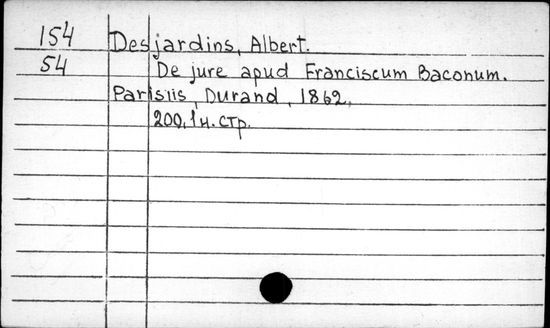 154 Desjardins, Albert.
54 De jure apud Franciscum Baconum.
Parisiis, Durand, 1862,
200, 1 н. стр.